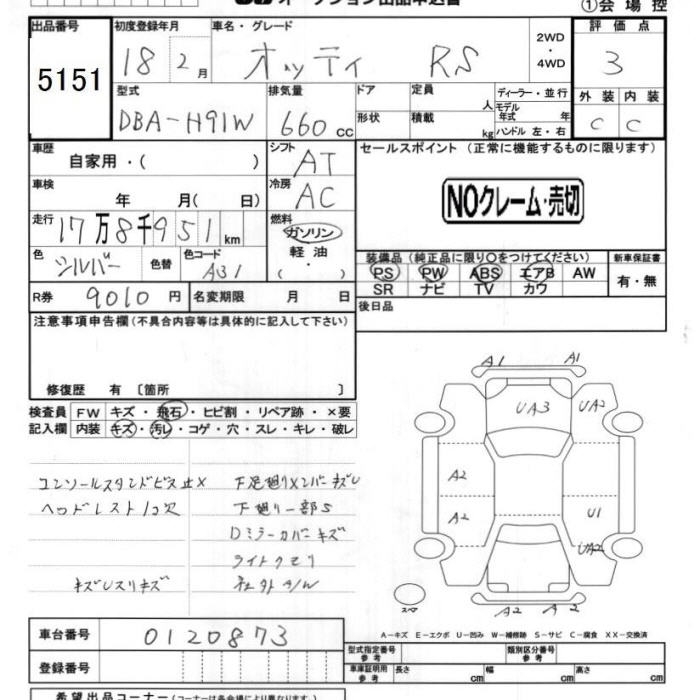 オークション出品申込書
①会場控
出品番号 初度登録年月 車名・グレード 2WD・4WD 評価点
5151 18 2月 オッティ RS 3
型式 排気量 ドア 定員 人 ディーラー・並行 外装 内装
DBA-H91W 660cc 形状 積載 kg モデル年式 年 ハンドル 左・右 C C
車歴 自家用・( ) シフト AT セールスポイント (正常に機能するものに限ります)
車検 年 月( 日) 冷房 AC NOクレーム・売切
走行 17万8千951km 燃料 ガソリン
軽油
・( )
色 シルバー 色替 色コード A31
装備品 (純正品に限り○をつけてください) 新車保証書
PS PW ABS エアB AW 有・無
SR ナビ TV カワ
R券 9010円 名変期限 月 日 後日品
注意事項申告欄 (不具合内容等は具体的に記入して下さい)
修復歴 有 〔箇所 〕
検査員 FW キズ・飛石・ヒビ割・リペア跡・×要
記入欄 内装 キズ・汚レ・コゲ・穴・スレ・キレ・破レ
コンソールスタンドビス止× 下足廻りメンバーキズU
ヘッドレスト1コ欠 下廻り一部S
Dミラーカバーキズ
ライトクモリ
キズUスリキズ 社外A/W
A1 A1
UA3 UA2
A2
A2 U1
UA2
スペア
A2 A2
A-キズ E-エクボ U-凹み W-補修跡 S-サビ C-腐食 XX-交換済
車台番号 0120873
型式指定番号 参考 類別区分番号 参考
登録番号
車庫証明用 参考 長さ cm 幅 cm 高さ cm
希望出品コーナー (コーナーは各会場により異なります。)